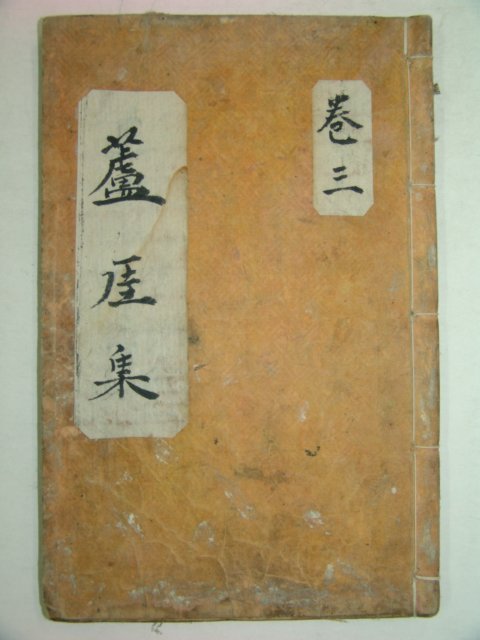 卷三
蘆厓集